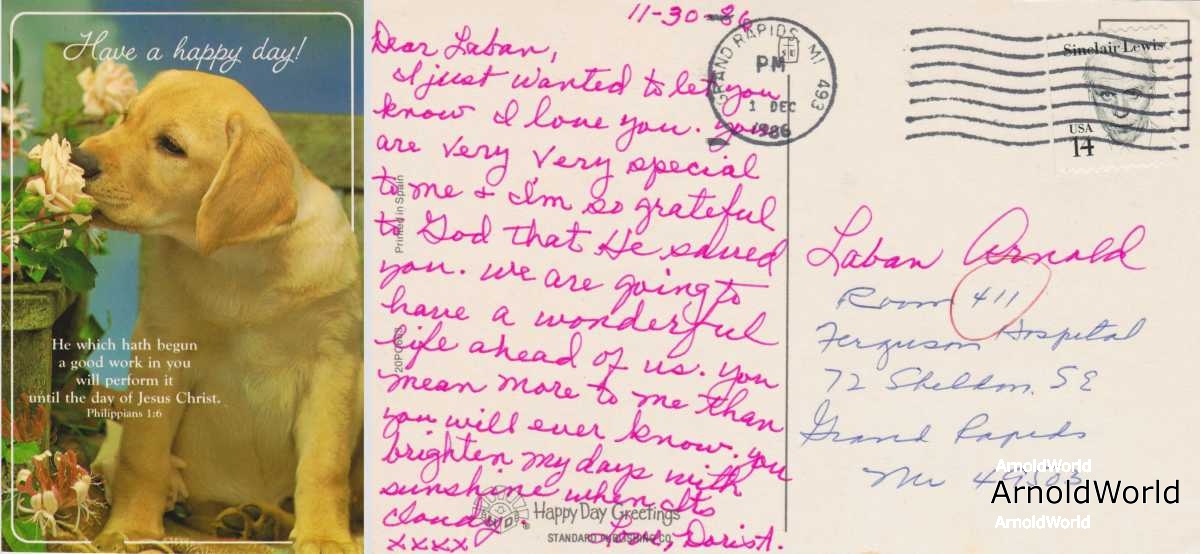 Have a happy day!
He which hath begun
a good work in you
will perform it
until the day of Jesus Christ.
Philippians 1:6
11-30-86
Dear Laban,
I just wanted to let you
know I love you. You
are very very special
to me & I'm so grateful
to God that He saved
you. We are going to
have a wonderful
life ahead of us. You
mean more to me than
you will ever know. You
brighten my days with
sunshine when Its
cloudy.
Love, Doris A.
xxxx
Printed in Spain
Happy Day Greetings
STANDARD PUBLISHING CO.
GRAND RAPIDS, MI 493
PM
1 DEC
1986
Sinclair Lewis
USA
14
Laban Arnold
Room 411
Ferguson Hospital
72 Sheldon, SE
Grand Rapids
MI 49503
ArnoldWorld
ArnoldWorld
ArnoldWorld